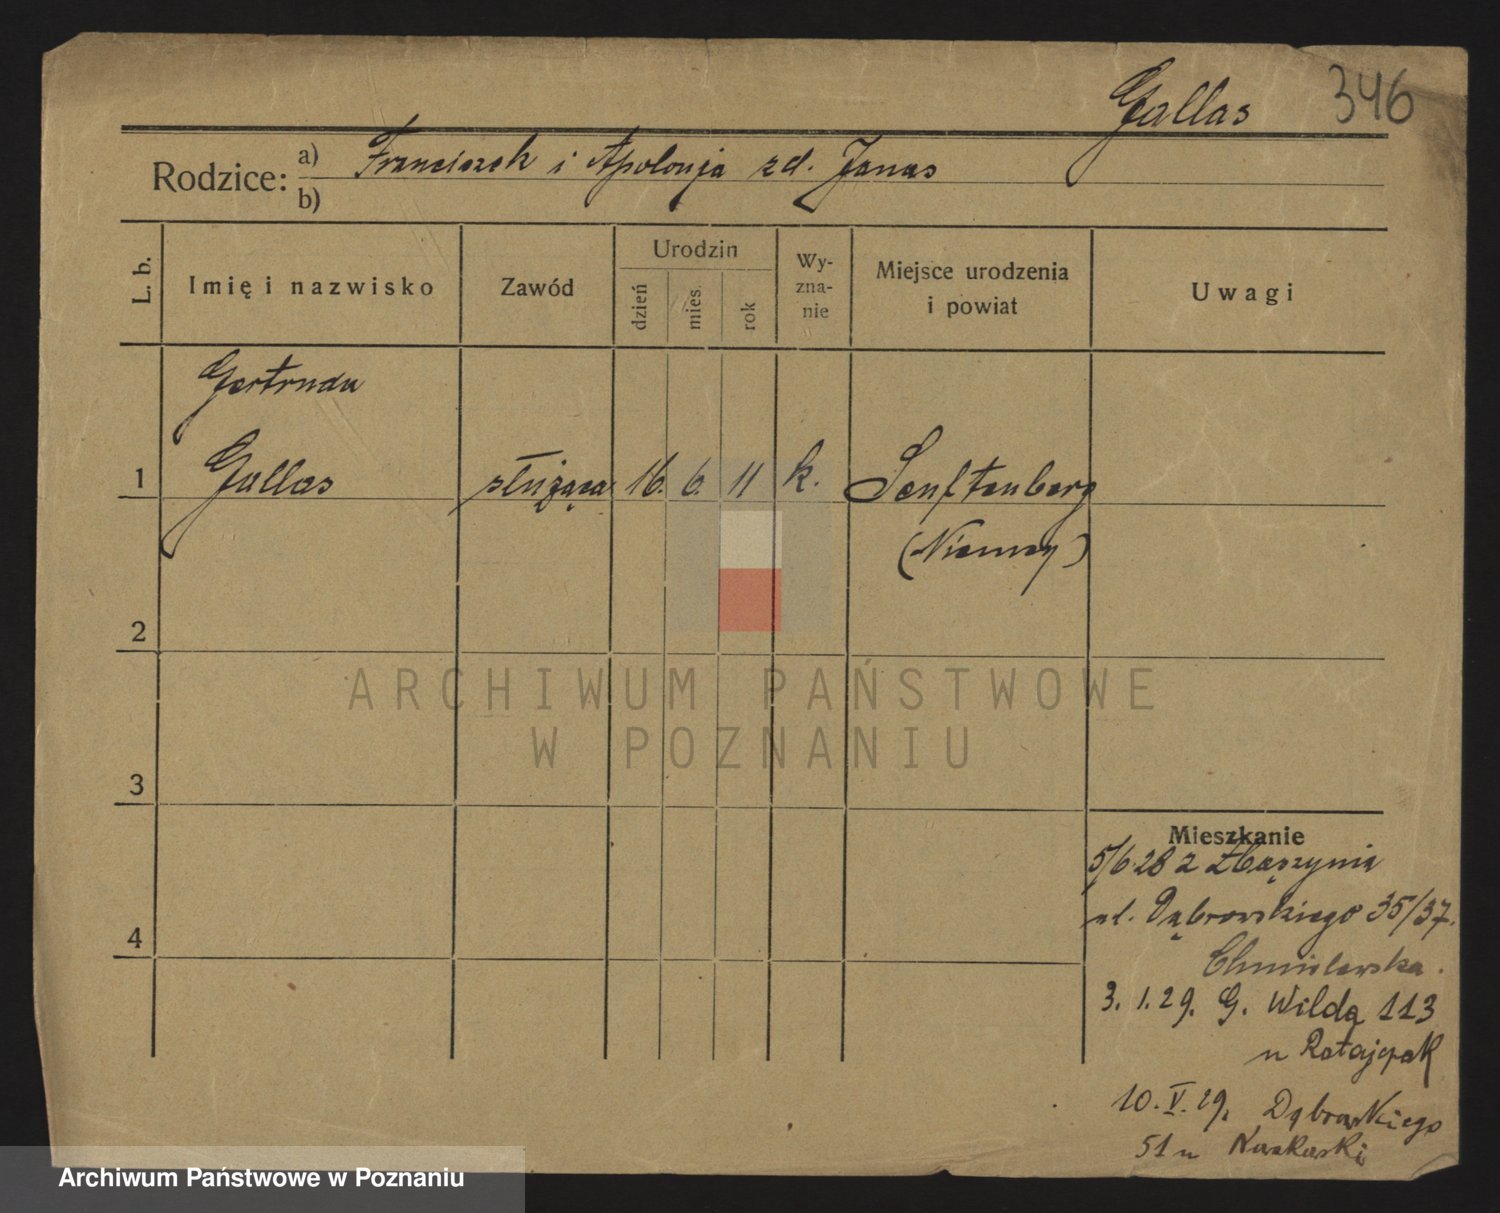 Gallas 346
Rodzice: a) Franciszek i Apolonja zd. Janas
b)
L. b.
Imię i nazwisko
Zawód
Urodzin
dzień
mies.
rok
Wy-
zna-
nie
Miejsce urodzenia
i powiat
Uwagi
Gertruda
1 Gallas służąca 16. 6. 11 k. Senftenberg
(Niemcy)
2
3
4
ARCHIWUM PAŃSTWOWE
W POZNANIU
Mieszkanie
5/6.28 z Zbąszynia
ul. Dąbrowskiego 35/37.
3. 1. 29. G. Wilda 113
u Ratajczak
10. V. 29. Dąbrowskiego
51 u
Archiwum Państwowe w Poznaniu